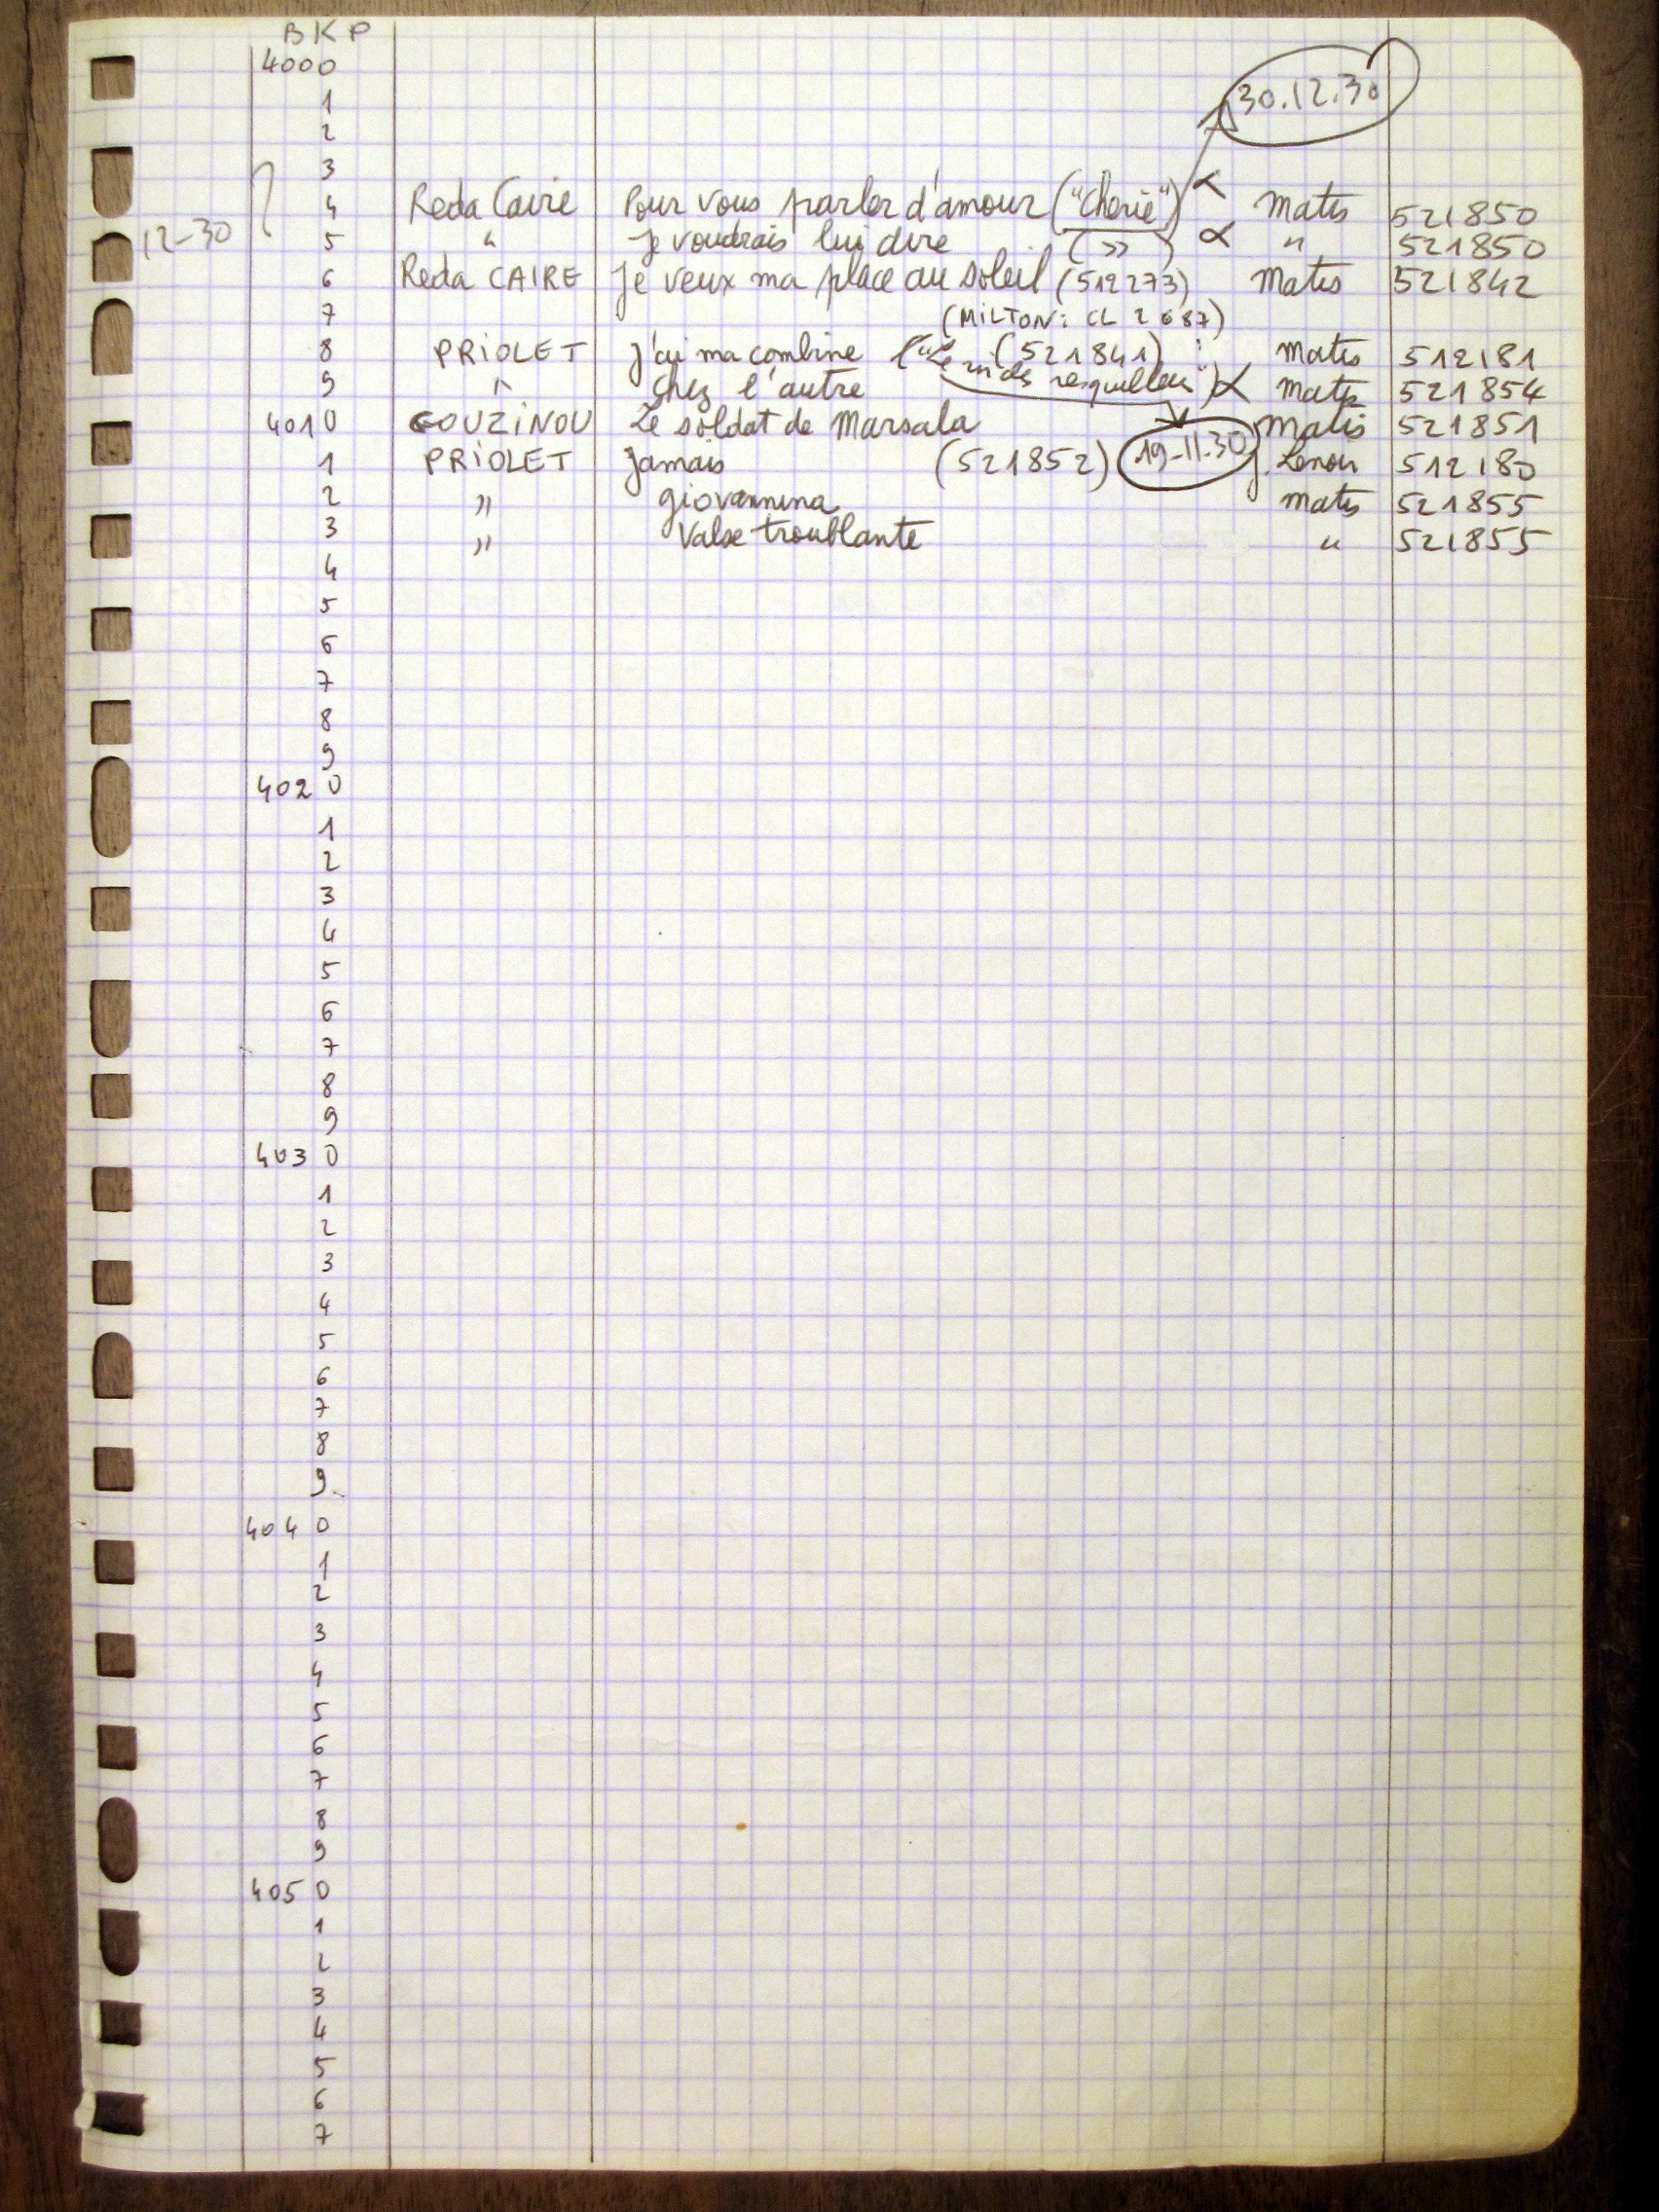 BKP
4000
1
2
30.12.30
3
4 Reda Caire Pour vous parler d'amour ("Cherie") α Matis 521850
12-30
5 " Je voudrais lui dire ( » ) α " 521850
6 Reda CAIRE Je veux ma place au soleil (512273) Matis 521842
7 (MILTON: CL 2687)
8 PRIOLET J'ai ma combine (521841) : Matis 512181
("Le roi des resquilleurs") α
9 " Chez l'autre Matis 521854
4010 GOUZINOU Le soldat de Marsala Matis 521851
1 PRIOLET Jamais (521852) 19-11-30 J. Lenoir 512180
2 " giovannina Matis 521855
3 " Valse troublante " 521855
4
5
6
7
8
9
4020
1
2
3
4
5
6
7
8
9
4030
1
2
3
4
5
6
7
8
9
4040
1
2
3
4
5
6
7
8
9
4050
1
2
3
4
5
6
7